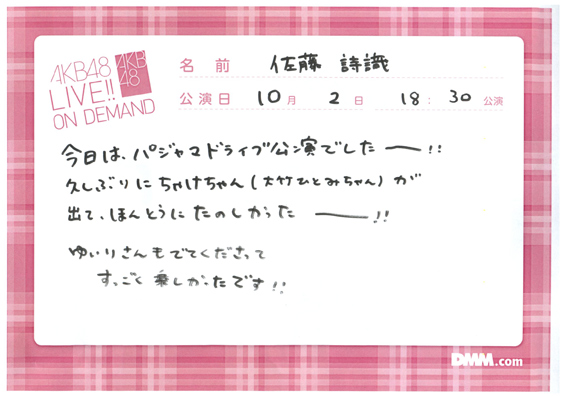 AKB48
LIVE!!
ON DEMAND
AKB
48
名前 佐藤 詩識
公演日 10月 2日 18:30公演
今日は、パジャマドライブ公演でしたー!!
久しぶりにちゃけちゃん(大竹ひとみちゃん)が
出て、ほんとうにたのしかったー!!
ゆいりさんもでてくださって
すっごく楽しかったです!!
DMM.com